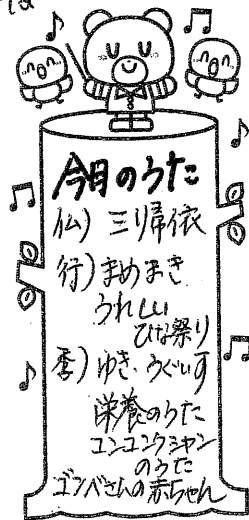 今月のうた
仏) 三帰依
行) まめまき
うれしい
ひな祭り
季) ゆき・うぐいす
栄養のうた
コンコンクシャン
のうた
ゴンベさんの赤ちゃん